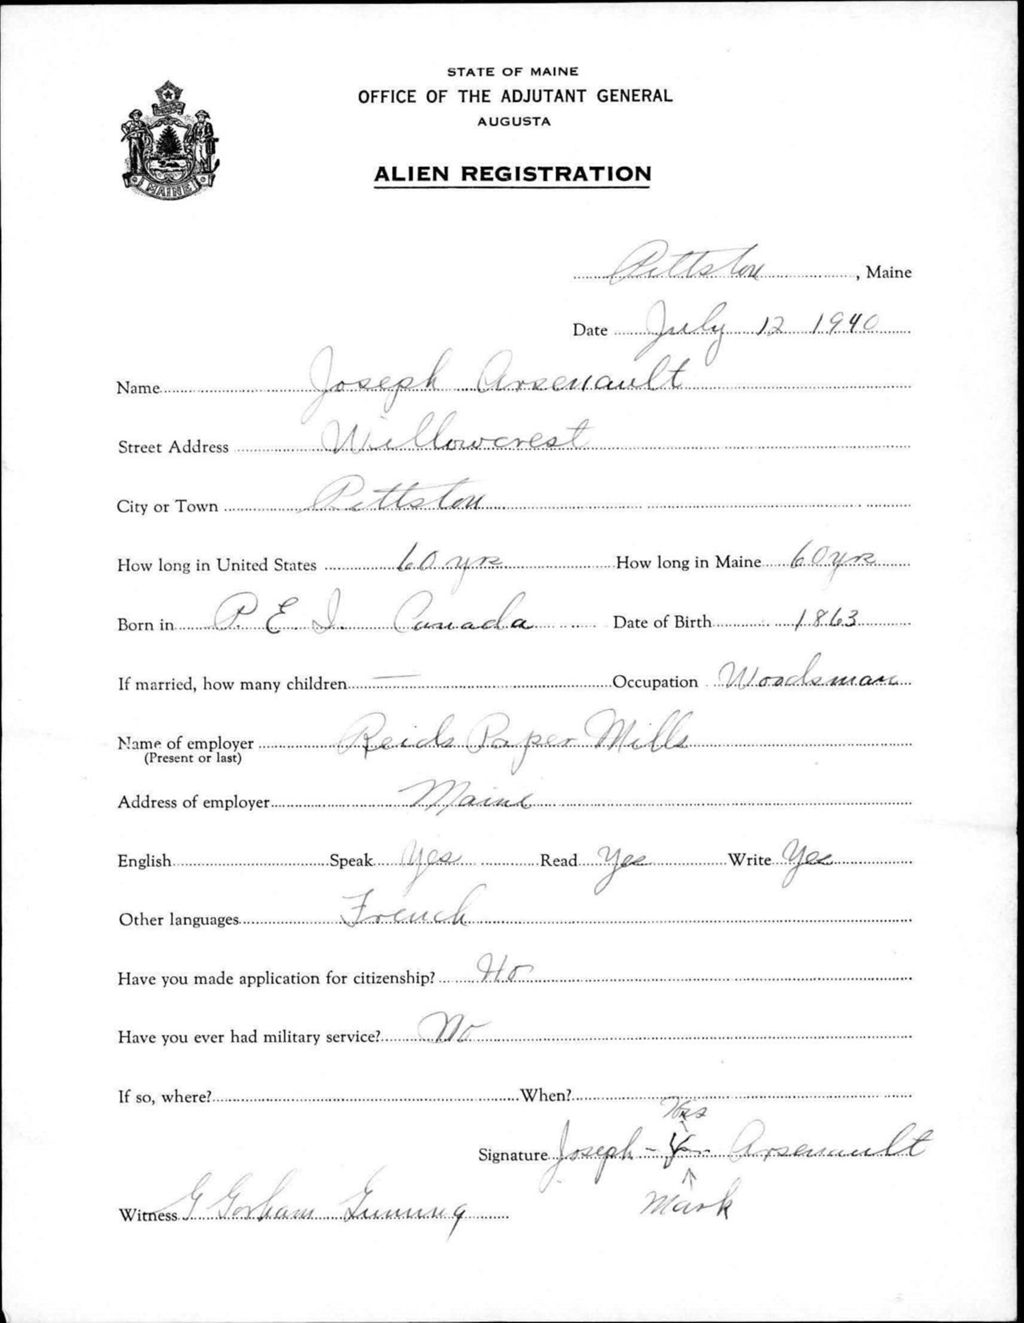 STATE OF MAINE
OFFICE OF THE ADJUTANT GENERAL
AUGUSTA
ALIEN REGISTRATION
MAINE
Pittston, Maine
Date July 12 1940
Name Joseph Arsenault
Street Address Willowcrest
City or Town Pittston
How long in United States 60 yrs How long in Maine 60 yrs
Born in P. E. I. Canada Date of Birth 1863
If married, how many children — Occupation Woodsman
Name of employer Reids Paper Mills
(Present or last)
Address of employer Maine
English Speak Yes Read Yes Write Yes
Other languages French
Have you made application for citizenship? No
Have you ever had military service? No
If so, where? When?
His
Signature Joseph - X - Arsenault
Mark
Witness G Gorham